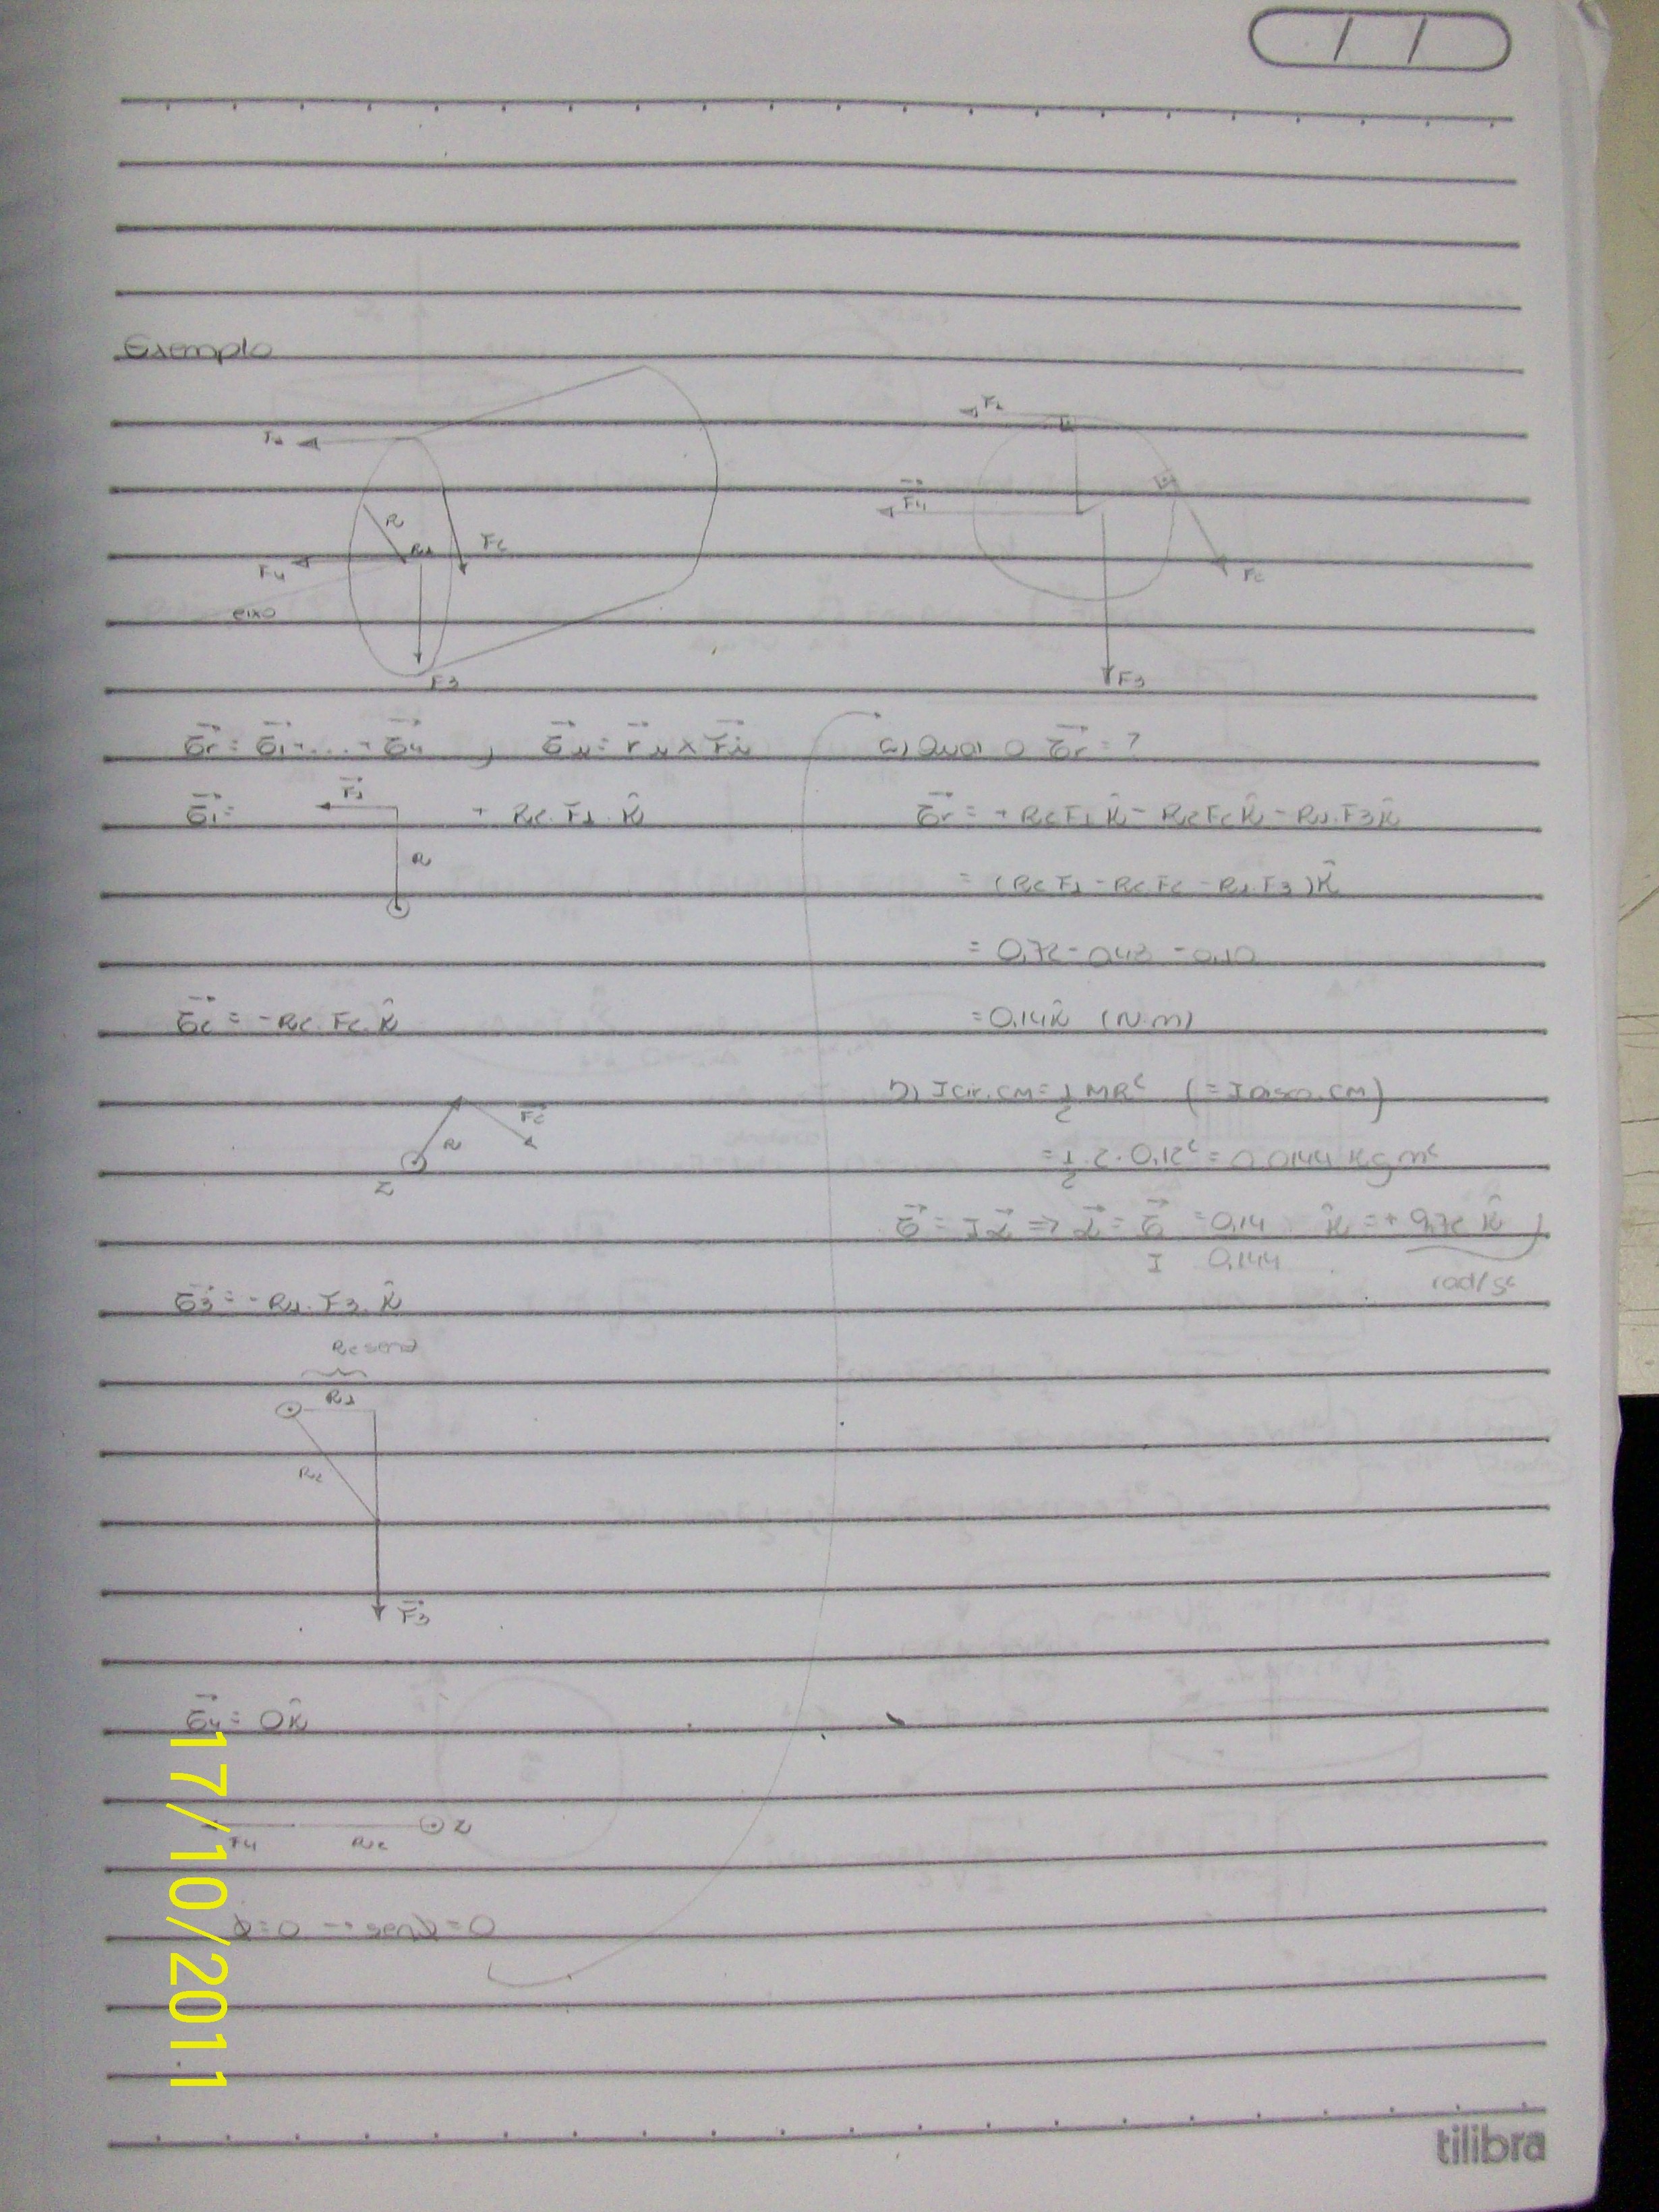 Exemplo
F1
F4
eixo
R
R1
F2
F3
F1
F4
F2
F3
σr = σ1 + ... + σ4 , σi = ri x Fi
σ1 = + R2 . F1 . k̂
F1
R
σ2 = - R2 . F2 . k̂
F2
R
z
σ3 = - R1 . F3 . k̂
R1
R2
F3
σ4 = 0k̂
F4 R2 z
ϕ=0 → senϕ=0
a) Qual o σr = ?
σr = + R2F1 k̂ - R2F2 k̂ - R1.F3 k̂
= (R2F1 - R2F2 - R1.F3) k̂
= 0,72 - 0,48 - 0,10
= 0,14 k̂ (N.m)
b) Icir.CM = 1/2 MR² (= Idisco.CM)
= 1/2 . 2 . 0,12² = 0,0144 kg m²
σ = Iα => α = σ/I = 0,14/0,144 k̂ = + 9,72 k̂
rad/s²
17/10/2011
tilibra